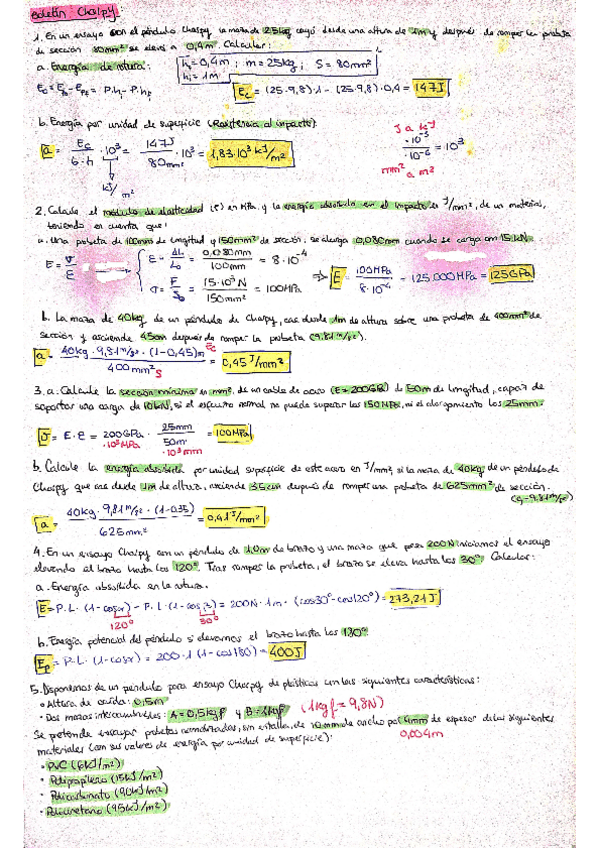 Boletín Charpy:
1. En un ensayo con el péndulo Charpy, la maza de 25kg cayó desde una altura de 1m y después de romper la probeta
de sección 80mm² se elevó a 0,4m. Calcular:
a. Energía de rotura:
h₀=0,4m; m=25kg; S=80mm²
h₁=1m
Ec = (25·9,8)·1 - (25·9,8)·0,4 = 147J
b. Energía por unidad de superficie (Resistencia al impacto):
J a kJ
a = ·10³ = 147J / 80mm² ·10³ = 1,83·10³ kJ/m²
10⁻³ / 10⁻⁶ = 10³
kJ/m²
mm² a m²
2. Calcule el módulo de elasticidad (E) en MPa. y la energía absorbida en el impacto en J/mm², de un material,
teniendo en cuenta que:
a. Una probeta de 100mm de longitud y 150mm² de sección, se alarga 0,080mm cuando se carga con 15 kN.
E = σ/ε
ε = ΔL/L₀ = 0,080mm/100mm = 8·10⁻⁴
σ = F/S₀ = 15·10³N/150mm² = 100MPa
⇒ E = 100MPa/8·10⁻⁴ = 125.000MPa = 125GPa
b. La maza de 40kg, de un péndulo de Charpy, cae desde 1m de altura sobre una probeta de 400mm² de
sección y asciende 45cm después de romper la probeta (9,81m/s²).
a = 40kg·9,81m/s²·(1-0,45)m / 400mm² = 0,45J/mm²
3. a. Calcule la sección mínima en mm², de un cable de acero (E=200GPa) de 50m de longitud, capaz de
soportar una carga de 10kN, si el esfuerzo normal no puede superar los 150MPa, ni el alargamiento los 25mm.
σ = E·ε = 200GPa · 25mm/50m = 100MPa
·10³MPa ·10³mm
b. Calcule la energía absorbida por unidad superficie de este acero en J/mm², si la maza de 40kg, de un péndulo de
Charpy que cae desde 1m de altura, asciende 35cm después de romper una probeta de 625mm² de sección.
(g=9,81m/s²)
a = 40kg·9,81m/s²·(1-0,35) / 625mm² = 0,41J/mm²
4. En un ensayo Charpy con un péndulo de 1,0m de brazo y una maza que pesa 200N iniciamos el ensayo
elevando el brazo hasta los 120°. Tras romper la probeta, el brazo se eleva hasta los 30°. Calcular:
a. Energía absorbida en la rotura.
E = P·L·(1-cosα) - P·L·(1-cosβ) = 200N·1m·(cos30°-cos120°) = 273,21J
120° 30°
b. Energía potencial del péndulo si elevamos el brazo hasta los 180°
Ep = P·L·(1-cosα) = 200·1·(1-cos180) = 400J
5. Disponemos de un péndulo para ensayo Charpy de plásticos con las siguientes características:
• Altura de caída: 0,5m
• Dos mazas intercambiables: A=0,5kgf y B=1kgf (1kgf=9,8N)
Se pretende ensayar probetas normalizadas, sin entalla, de 10mm de ancho por 4mm de espesor de los siguientes
0,004m
materiales (con sus valores de energía por unidad de superficie):
• PVC (6kJ/m²)
• Polipropileno (15kJ/m²)
• Policarbonato (90kJ/m²)
• Poliuretano (95kJ/m²)